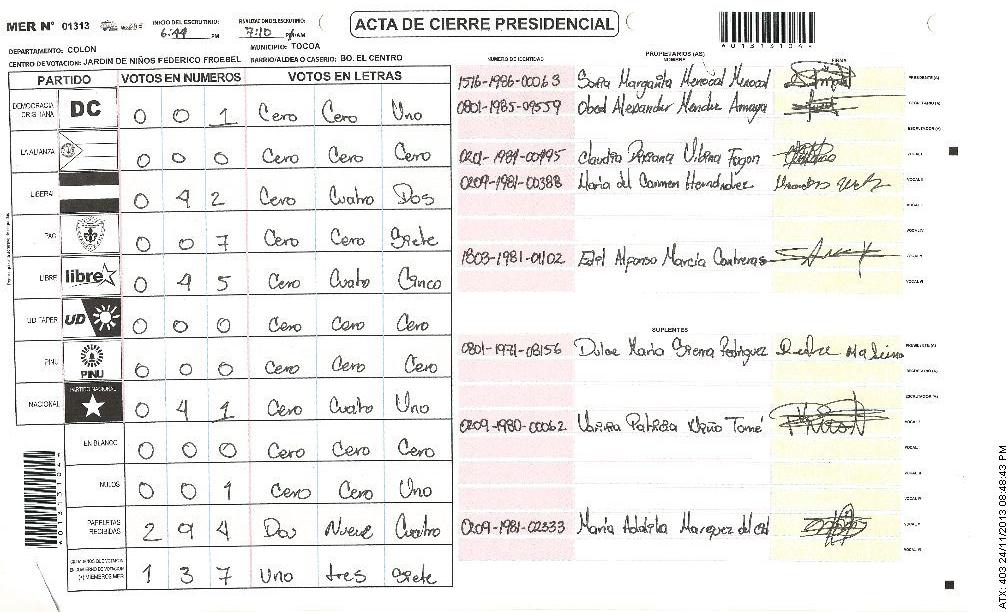 MER N° 01313
INICIO DEL ESCRUTINIO:
6:44 PM
7:10 PM
ACTA DE CIERRE PRESIDENCIAL
DEPARTAMENTO: COLON
MUNICIPIO: TOCOA
CENTRO DE VOTACION: JARDIN DE NIÑOS FEDERICO FROEBEL BARRIO/ALDEA O CASERIO: BO. EL CENTRO
PARTIDO VOTOS EN NUMEROS VOTOS EN LETRAS
DEMOCRACIA CRISTIANA DC 0 0 1 Cero Cero Uno
LA ALIANZA 0 0 0 Cero Cero Cero
LIBERAL 0 4 2 Cero Cuatro Dos
PAC 0 0 7 Cero Cero Siete
LIBRE libre 0 4 5 Cero Cuatro Cinco
UD FAPER UD 0 0 0 Cero Cero Cero
PINU PINU 0 0 0 Cero Cero Cero
NACIONAL PARTIDO NACIONAL 0 4 1 Cero Cuatro Uno
EN BLANCO 0 0 0 Cero Cero Cero
NULOS 0 0 1 Cero Cero Uno
PAPELETAS RECIBIDAS 2 9 4 Dos Nueve Cuatro
1 3 7 Uno tres Siete
PROPIETARIOS (AS)
NUMERO DE IDENTIDAD NOMBRE FIRMA
1516-1986-00063 Sofia Margarita Menocal Menocal PRESIDENTE (A)
0801-1985-09559 Obed Alexander Mendez Amaya SECRETARIO (A)
ESCRUTADOR (A)
Claudia VOCAL I
0209-1981-00388 Maria del Carmen Hernandez VOCAL II
1803-1981-01102 Alfonso Marcia Contreras
SUPLENTES
0801-1971-08156 Dulce Maria Sierra Rodriguez PRESIDENTE (A)
SECRETARIO (A)
ESCRUTADOR (A)
0209-1980-00062 Patricia Tomé VOCAL I
0209-1981-02333 Maria Marquez del
ATX: 403 24/11/2013 08:48:43 PM